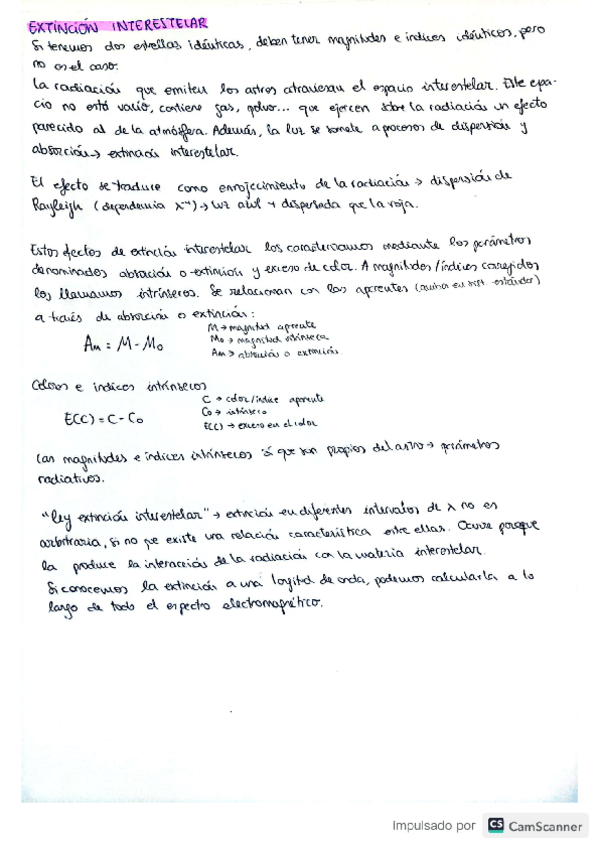 EXTINCIÓN INTERESTELAR
Si tenemos dos estrellas idénticas, deben tener magnitudes e índices idénticos, pero
no es el caso.
La radiación que emiten los astros atraviesan el espacio interestelar. Este espa-
cio no está vacío, contiene gas, polvo... que ejercen sobre la radiación un efecto
parecido al de la atmósfera. Además, la luz se somete a procesos de dispersión y
absorción → extinción interestelar.
El efecto se traduce como enrojecimiento de la radiación → dispersión de
Rayleigh (dependencia λ⁻⁴) → luz azul + dispersada que la roja.
Estos efectos de extinción interestelar los caracterizamos mediante los parámetros
denominados absorción o extinción y exceso de color. A magnitudes/índices corregidos
los llamamos intrínseros. Se relacionan con las aparentes
a través de absorción o extinción:
Am = M - Mo
M → magnitud aparente
Mo → magnitud intrínseca
Am → absorción o extinción
Colores e índices intrínsecos
E(C) = C - Co
C → color/índice aparente
Co → intrínseco
E(C) → exceso en el color
Las magnitudes e índices intrínsecos sí que son propios del astro → parámetros
radiativos.
"Ley extinción interestelar" → extinción en diferentes intervalos de λ no es
arbitraria, si no que existe una relación característica entre ellas. Ocurre porque
la produce la interacción de la radiación con la materia interestelar.
Si conocemos la extinción a una longitud de onda, podemos calcularla a lo
largo de todo el espectro electromagnético.
Impulsado por CS CamScanner